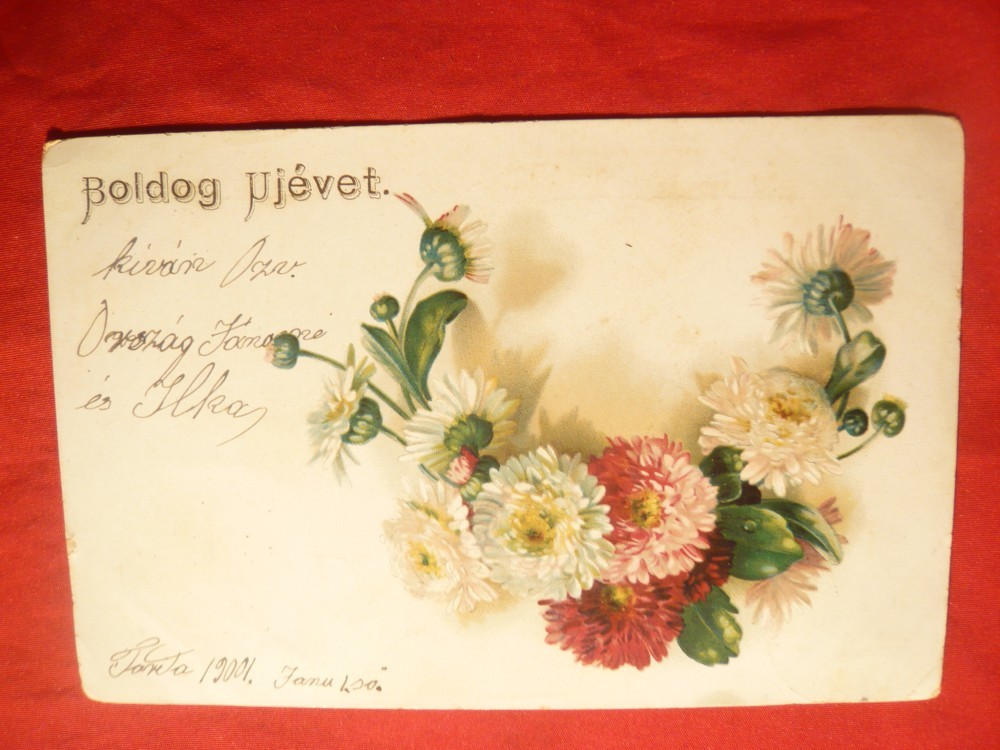 Boldog Ujévet.
kiván Özv.
Ország Jánosné
és Ilka
1901. Janu 1.ső.